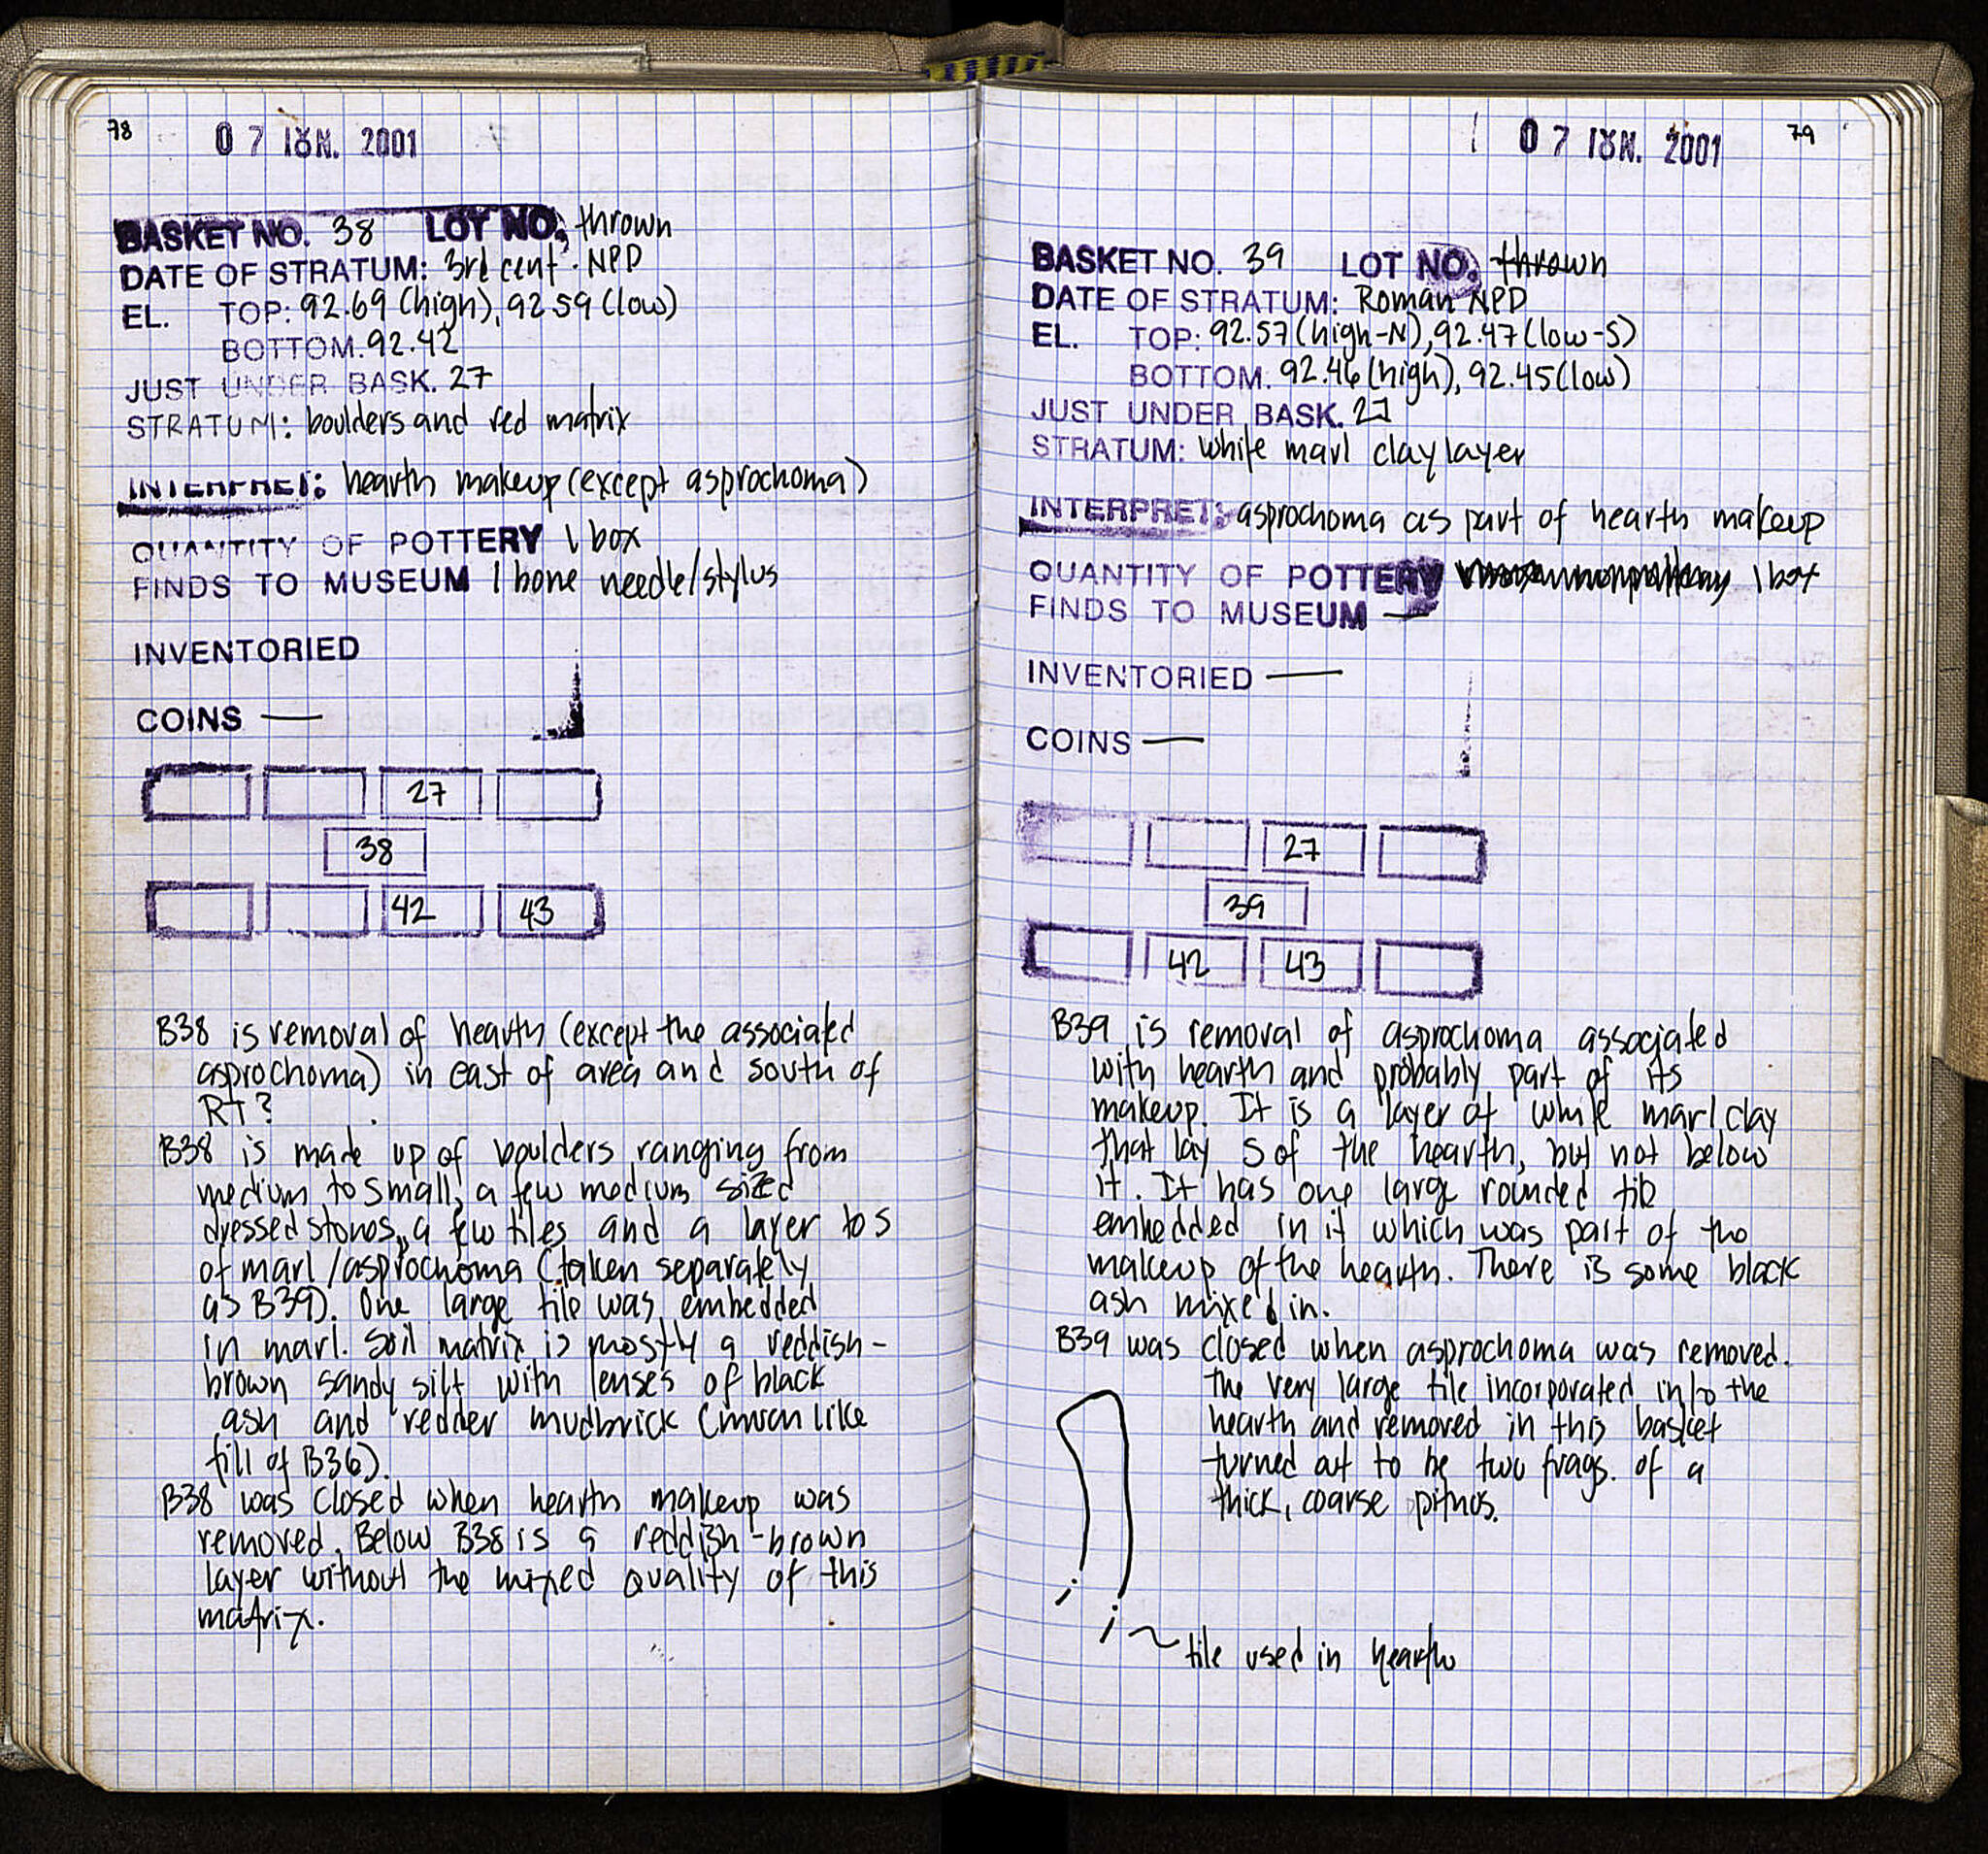 78
07 ΙΟΥΝ. 2001
BASKET NO. 38 LOT NO. thrown
DATE OF STRATUM: 3rd cent. NPD
EL. TOP: 92.69 (high), 92.59 (low)
BOTTOM. 92.42
JUST UNDER BASK. 27
STRATUM: boulders and red matrix
INTERPRET: hearth makeup (except asprochoma)
QUANTITY OF POTTERY 1 box
FINDS TO MUSEUM 1 bone needle/stylus
INVENTORIED
COINS —
27
38
42 43
B38 is removal of hearth (except the associated
asprochoma) in east of area and south of
RT?
B38 is made up of boulders ranging from
medium to small, a few medium sized
dressed stones, a few tiles and a layer to S
of marl/asprochoma (taken separately
as B39). One large tile was embedded
in marl. Soil matrix is mostly a reddish-
brown sandy silt with lenses of black
ash and redder mudbrick (much like
fill of B36).
B38 was closed when hearth makeup was
removed. Below B38 is a reddish-brown
layer without the mixed quality of this
matrix.
79
07 ΙΟΥΝ. 2001
BASKET NO. 39 LOT NO. thrown
DATE OF STRATUM: Roman NPD
EL. TOP: 92.57 (high-N), 92.47 (low-S)
BOTTOM. 92.46 (high), 92.45 (low)
JUST UNDER BASK. 27
STRATUM: white marl clay layer
INTERPRET: asprochoma as part of hearth makeup
QUANTITY OF POTTERY 1 box
FINDS TO MUSEUM —
INVENTORIED —
COINS —
27
39
42 43
B39 is removal of asprochoma associated
with hearth and probably part of its
makeup. It is a layer of white marl clay
that lay S of the hearth, but not below
it. It has one large rounded tile
embedded in it which was part of the
makeup of the hearth. There is some black
ash mixed in.
B39 was closed when asprochoma was removed.
The very large tile incorporated into the
hearth and removed in this basket
turned out to be two frags. of a
thick, coarse pithos.
tile used in hearth